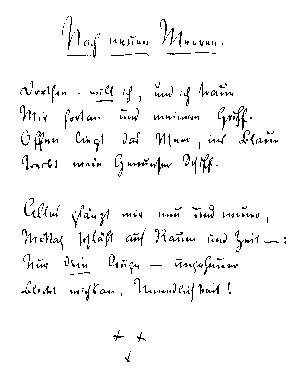 Nach neuen Meeren.
Dorthin - will ich, und ich traue
Mir fortan und meinem Griff.
Offen liegt das Meer, ins Blaue
Treibt mein Genueser Schiff.
Alles glänzt mir neu und neuer,
Mittag schläft auf Raum und Zeit —:
Nur dein Auge — ungeheuer
Blickt mich's an, Unendlichkeit!